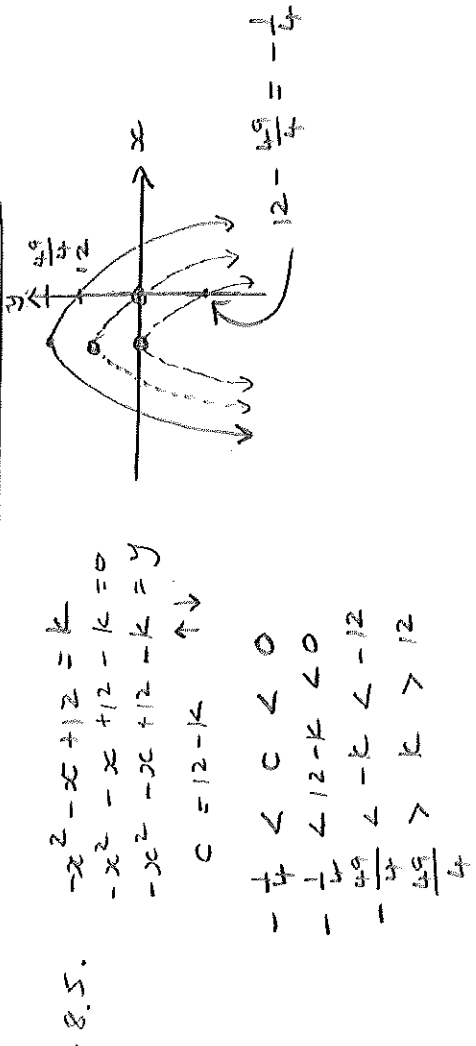 8.5. -x² - x + 12 = k
-x² - x + 12 - k = 0
-x² - x + 12 - k = y
c = 12 - k ↑ ↓
-1/4 < c < 0
-1/4 < 12 - k < 0
-49/4 < -k < -12
49/4 > k > 12
y
49/4
12
x
12 - 49/4 = -1/4